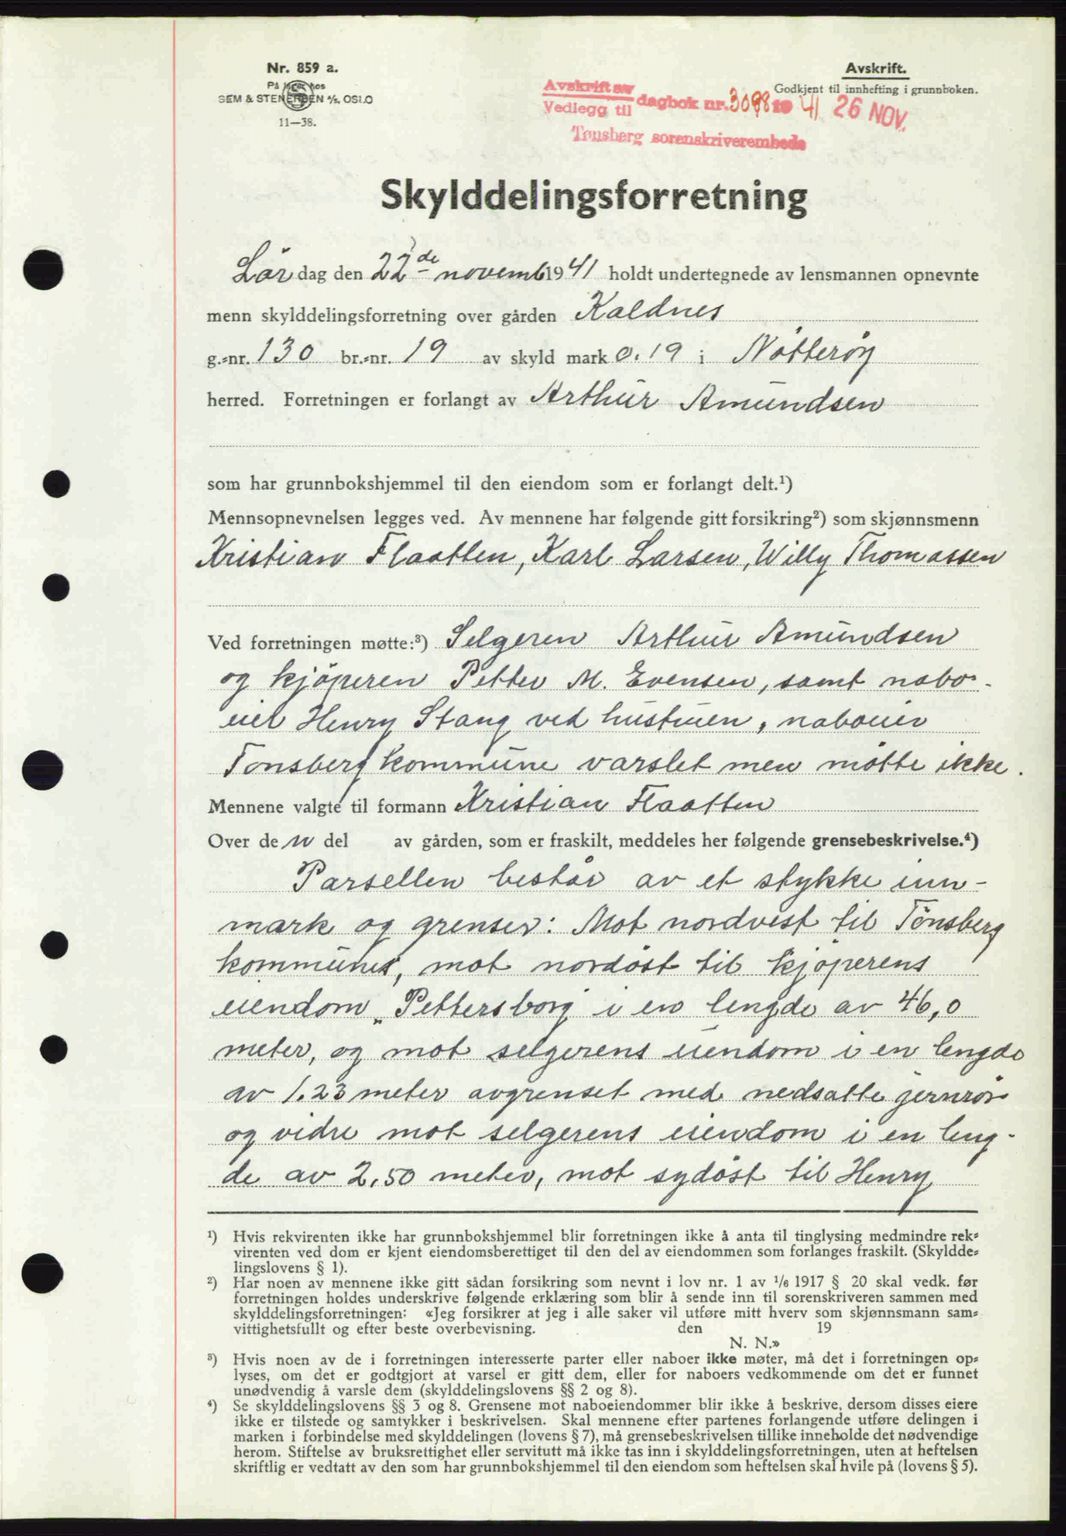 Nr. 859 a.
På lager hos
SEM & STENERSEN A/S, OSLO
11—38.
Avskrift.
Godkjent til innhefting i grunnboken.
Avskrift av
Vedlegg til dagbok nr. 3098 19 41 26 NOV.
Tønsberg sorenskriverembede
Skylddelingsforretning
Lör dag den 22de novemb 1941 holdt undertegnede av lensmannen opnevnte
menn skylddelingsforretning over gården Kaldnes
g.-nr. 130 br.-nr. 19 av skyld mark 0.19 i Nötteröy
herred. Forretningen er forlangt av Arthur Amundsen
som har grunnbokshjemmel til den eiendom som er forlangt delt.¹)
Mennsopnevnelsen legges ved. Av mennene har følgende gitt forsikring²) som skjønnsmenn
Kristian Flaatten, Karl Larsen, Willy Thomassen
Ved forretningen møtte:³) Selgeren Arthur Amundsen
og kjöperen Petter M. Evensen, samt nabo-
eier Henry Stang ved hustruen, naboeier
Tönsberg kommune varslet men mötte ikke.
Mennene valgte til formann Kristian Flaatten
Over den del av gården, som er fraskilt, meddeles her følgende grensebeskrivelse.⁴)
Parsellen består av et stykke inn-
mark og grenser: Mot nordvest til Tönsberg
kommunes, mot nordöst til kjöperens
eiendom „Pettersborg" i en lengde av 46,0
meter, og mot selgerens eiendom i en lengde
av 1.23 meter avgrenset med nedsatte jernrör
og vidre mot selgerens eiendom i en leng-
de av 2,50 meter, mot sydöst til Henry
¹) Hvis rekvirenten ikke har grunnbokshjemmel blir forretningen ikke å anta til tinglysing medmindre rek-
virenten ved dom er kjent eiendomsberettiget til den del av eiendommen som forlanges fraskilt. (Skyldde-
lingslovens § 1).
²) Har noen av mennene ikke gitt sådan forsikring som nevnt i lov nr. 1 av 1/6 1917 § 20 skal vedk. før
forretningen holdes underskrive følgende erklæring som blir å sende inn til sorenskriveren sammen med
skylddelingsforretningen: «Jeg forsikrer at jeg i alle saker vil utføre mitt hverv som skjønnsmann sam-
vittighetsfullt og efter beste overbevisning. den 19
N. N.»
³) Hvis noen av de i forretningen interesserte parter eller naboer ikke møter, må det i forretningen op-
lyses, om det er godtgjort at varsel er gitt dem, eller for naboers vedkommende om det er funnet
unødvendig å varsle dem (skylddelingslovens §§ 2 og 8).
⁴) Se skylddelingslovens §§ 3 og 8. Grensene mot naboeiendommer blir ikke å beskrive, dersom disses eiere
ikke er tilstede og samtykker i beskrivelsen. Skal mennene efter partenes forlangende utføre delingen i
marken i forbindelse med skylddelingen (lovens § 7), må grensebeskrivelsen tillike inneholde det nødvendige
herom. Stiftelse av bruksrettighet eller servitutt må ikke tas inn i skylddelingsforretningen, uten at heftelsen
skriftlig er vedtatt av den som har grunnbokshjemmel til den eiendom som heftelsen skal hvile på (lovens § 5).